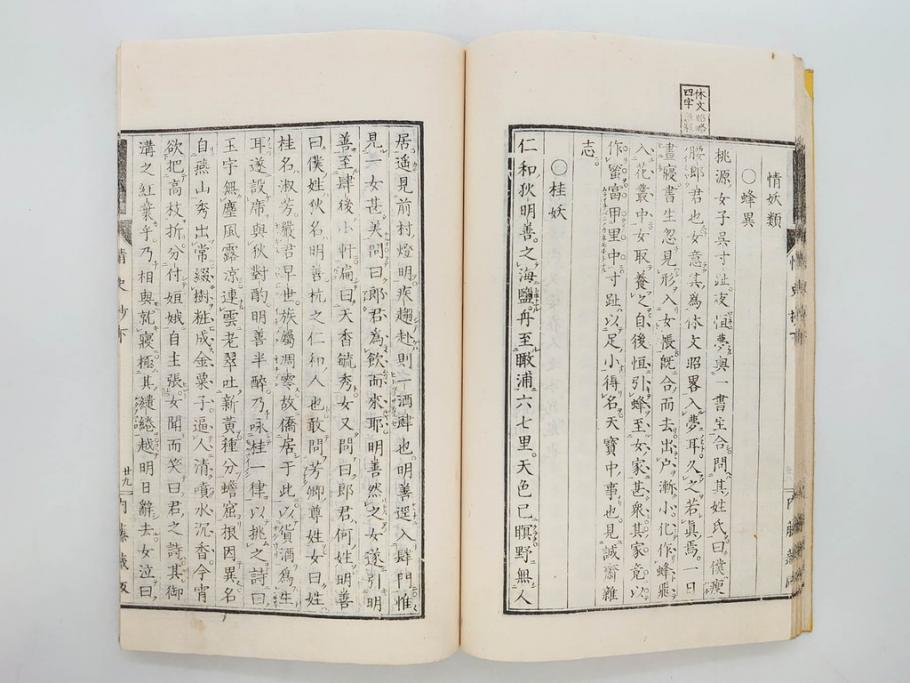 休文
四字
情妖類
〇蜂異
桃源女子吳寸趾夜恒夢與一書生合問其姓氏曰僕瘦
腰郎君也女意其為休文昭畧入夢耳久之若眞焉一日
晝寢書生忽見形入女帳旣合而去出戶漸小化作蜂飛
入花叢中女取養之自後恒引蜂至女家甚衆其家竟以
作蜜富甲里中寸趾以足小得名天寶中事也見誠齋雜
志。
〇桂妖
仁和狄明善之海鹽。舟至瞰浦六七里。天色已暝野無人
居遥見前村燈明疾趨赴則一酒肆也明善逕入肆門惟
見一女甚美問曰郎君為飲而來耶明善然之女遂引明
善至肆後小軒扁曰天香毓秀女又問曰郎君何姓明善
曰僕姓狄名明善杭之仁和人也敢問芳卿尊姓女曰姓
桂名淑芳嚴君早世族屬凋零故僑居于此以貨酒為生
耳遂設席與狄對酌明善半醉乃咏桂一律以挑之詩曰
玉宇無塵風露凉連雲老翠吐新黃種分蟾窟根因異名
自燕山秀出常綴樹粧成金粟子逼人清噴水沉香今宵
欲把高枝折分付姮娥自主張女聞而笑曰君之詩其御
溝之紅葉乎乃相與就寢極其繾綣越明日辭去女泣曰
情史抄下
廿九